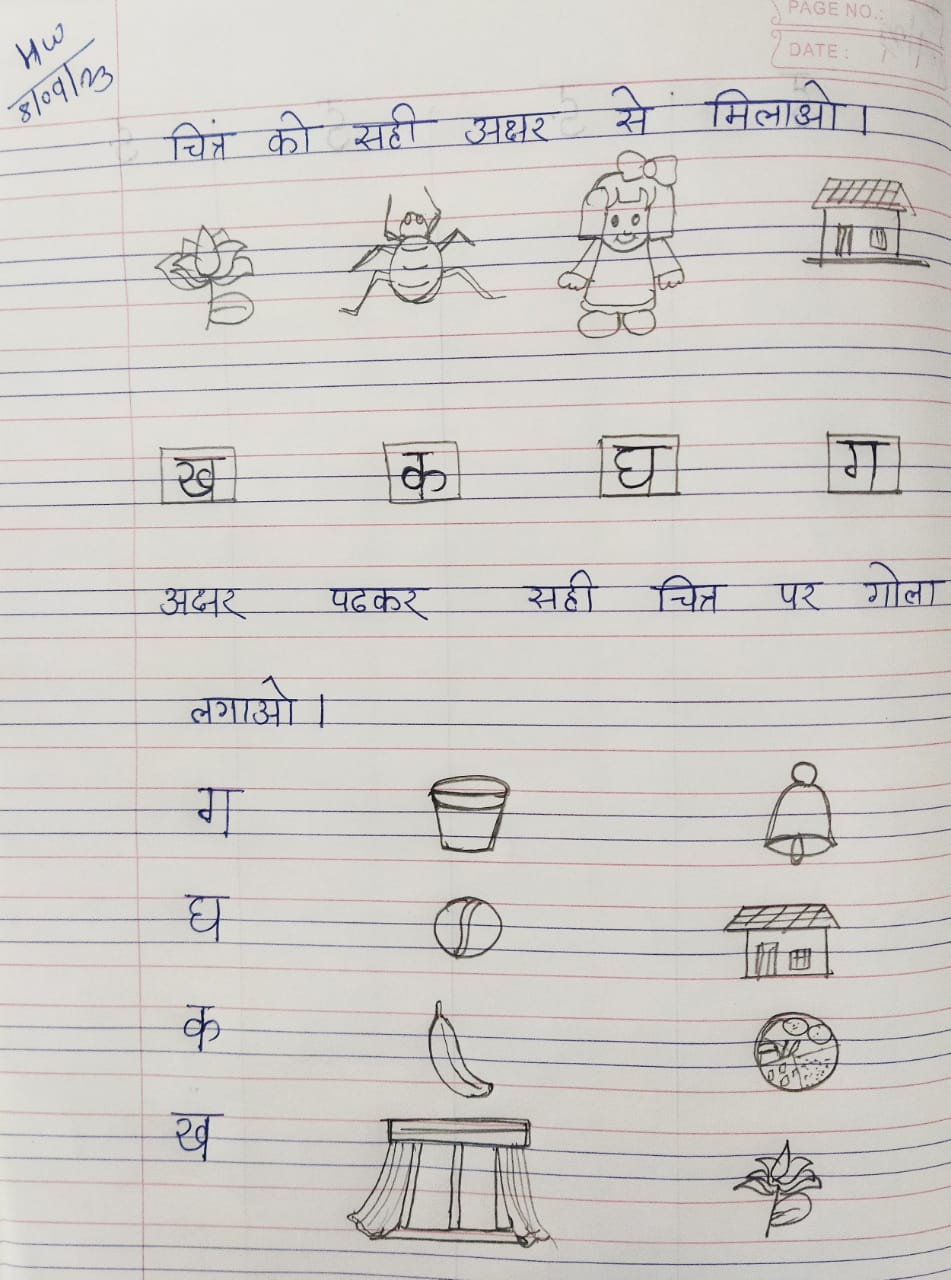 PAGE NO.:
DATE :
HW
8/09/23
चित्रं को सही अक्षर से मिलाओ।
ख क घ ग
अक्षर पढकर सही चित्र पर गोला
लगाओ।
ग
घ
क
ख